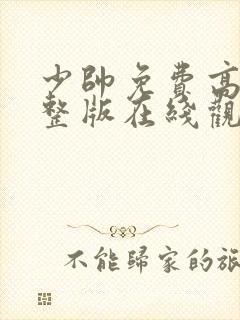 少帥免費高
整版在綫觀
不能歸家的旅